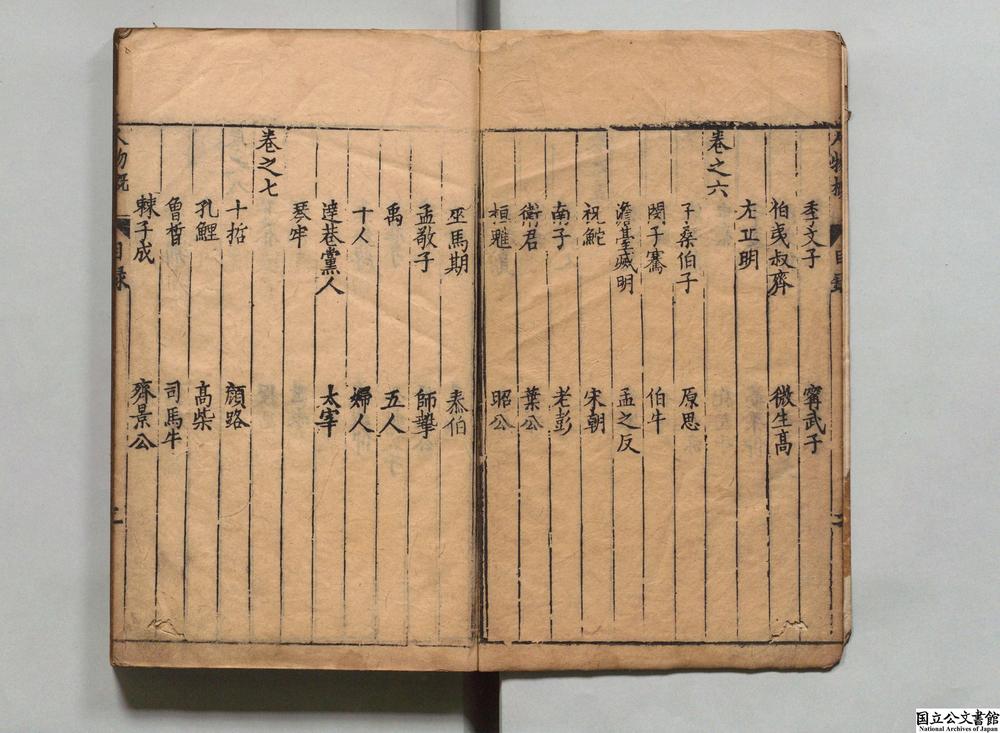 季文子　甯武子
伯夷叔齊　微生高
左丘明
卷之六
子桑伯子　原思
閔子騫　伯牛
澹臺滅明　孟之反
祝鮀　宋朝
南子　老彭
衛君　葉公
桓魋　昭公
巫馬期　泰伯
孟敬子　師摯
禹　五人
十人　婦人
達巷黨人　太宰
琴牢
卷之七
十哲　顏路
孔鯉　高柴
曾晳　司馬牛
棘子成　齊景公
人物概　目錄
国立公文書館
National Archives of Japan